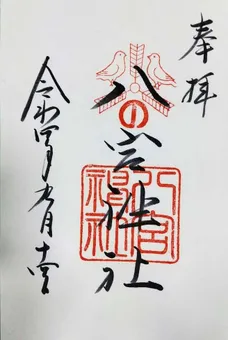 奉拝
八の宮神社
八宮
神社
令和四年九月